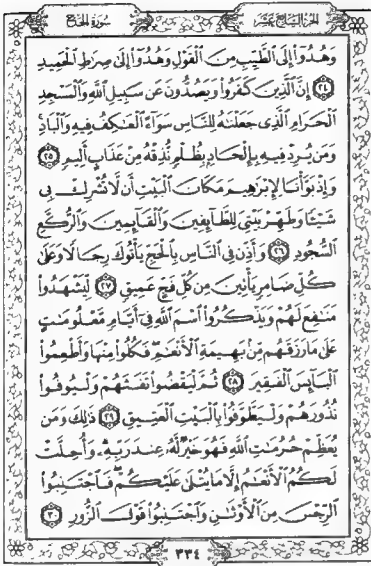 سورة الحج
الجزء السابع عشر
وَهُدُوٓا۟ إِلَى ٱلطَّيِّبِ مِنَ ٱلْقَوْلِ وَهُدُوٓا۟ إِلَىٰ صِرَٰطِ ٱلْحَمِيدِ
٢٤ إِنَّ ٱلَّذِينَ كَفَرُوا۟ وَيَصُدُّونَ عَن سَبِيلِ ٱللَّهِ وَٱلْمَسْجِدِ
ٱلْحَرَامِ ٱلَّذِى جَعَلْنَٰهُ لِلنَّاسِ سَوَآءً ٱلْعَٰكِفُ فِيهِ وَٱلْبَادِ
وَمَن يُرِدْ فِيهِ بِإِلْحَادٍۭ بِظُلْمٍ نُّذِقْهُ مِنْ عَذَابٍ أَلِيمٍ ٢٥
وَإِذْ بَوَّأْنَا لِإِبْرَٰهِيمَ مَكَانَ ٱلْبَيْتِ أَن لَّا تُشْرِكْ بِى
شَيْـًٔا وَطَهِّرْ بَيْتِىَ لِلطَّآئِفِينَ وَٱلْقَآئِمِينَ وَٱلرُّكَّعِ
ٱلسُّجُودِ ٢٦ وَأَذِّن فِى ٱلنَّاسِ بِٱلْحَجِّ يَأْتُوكَ رِجَالًا وَعَلَىٰ
كُلِّ ضَامِرٍ يَأْتِينَ مِن كُلِّ فَجٍّ عَمِيقٍ ٢٧ لِّيَشْهَدُوا۟
مَنَٰفِعَ لَهُمْ وَيَذْكُرُوا۟ ٱسْمَ ٱللَّهِ فِىٓ أَيَّامٍ مَّعْلُومَٰتٍ
عَلَىٰ مَا رَزَقَهُم مِّنۢ بَهِيمَةِ ٱلْأَنْعَٰمِ فَكُلُوا۟ مِنْهَا وَأَطْعِمُوا۟
ٱلْبَآئِسَ ٱلْفَقِيرَ ٢٨ ثُمَّ لْيَقْضُوا۟ تَفَثَهُمْ وَلْيُوفُوا۟
نُذُورَهُمْ وَلْيَطَّوَّفُوا۟ بِٱلْبَيْتِ ٱلْعَتِيقِ ٢٩ ذَٰلِكَ وَمَن
يُعَظِّمْ حُرُمَٰتِ ٱللَّهِ فَهُوَ خَيْرٌ لَّهُۥ عِندَ رَبِّهِۦ وَأُحِلَّتْ
لَكُمُ ٱلْأَنْعَٰمُ إِلَّا مَا يُتْلَىٰ عَلَيْكُمْ فَٱجْتَنِبُوا۟
ٱلرِّجْسَ مِنَ ٱلْأَوْثَٰنِ وَٱجْتَنِبُوا۟ قَوْلَ ٱلزُّورِ ٣٠
٣٣٤